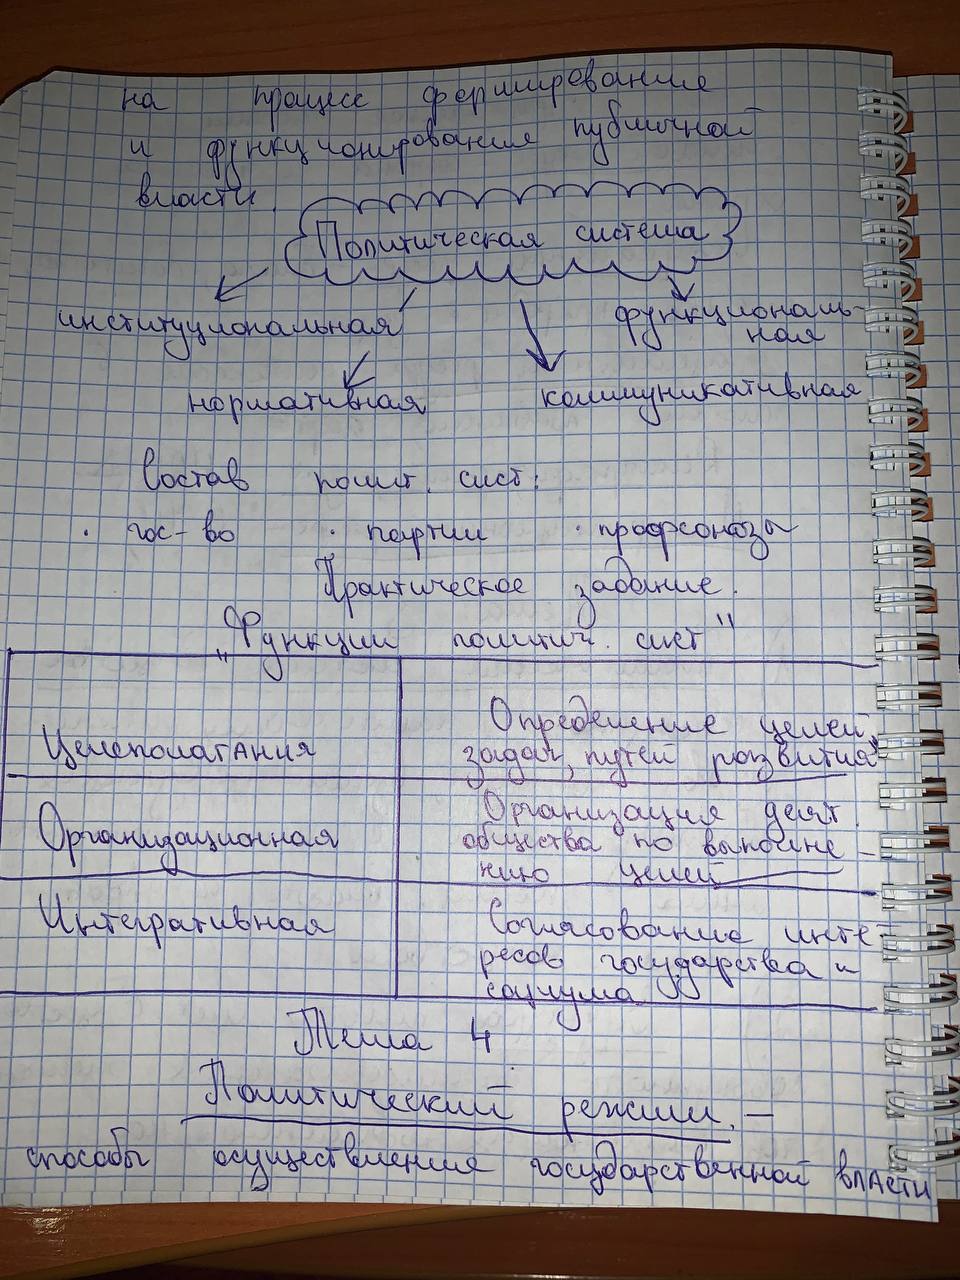 на процесс формирование
и функционирование публичной
власти.
Политическая система
институциональная
функциональ-
ная
нормативная
коммуникативная
Состав полит. сист:
· гос-во · партии · профсоюзы
Практическое задание.
"Функции политич. сист"
Целеполагания
Определение целей,
задач, путей развития
Организационная
Организация деят.
общества по выполне-
нию целей
Интегративная
Согласование инте-
ресов государства и
социума
Тема 4
Политический режим. –
способы осуществления государственной власти